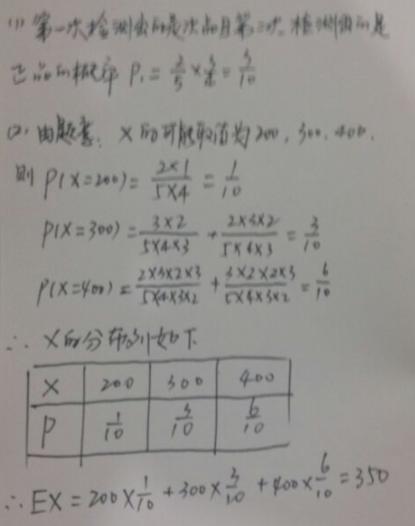 (1) 第一次检测出的是次品且第二次检测出的是
正品的概率 P₁ = 2/5 × 3/4 = 3/10
(2) 由题意, X的可能取值为200, 300, 400.
则 P(X=200) = (2×1)/(5×4) = 1/10
P(X=300) = (3×2)/(5×4×3) + (2×3×2)/(5×4×3) = 3/10
P(X=400) = (2×3×2×3)/(5×4×3×2) + (3×2×2×3)/(5×4×3×2) = 6/10
∴ X的分布列如下
X 200 300 400
P 1/10 3/10 6/10
∴ EX = 200×1/10 + 300×3/10 + 400×6/10 = 350